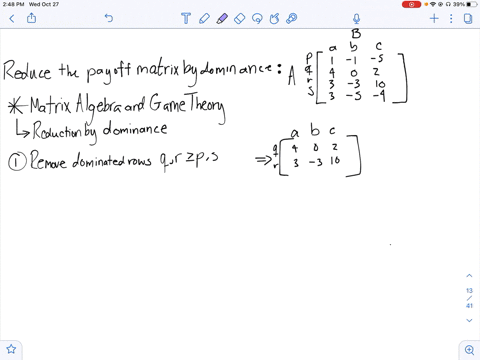 2:48 PM Wed Oct 27
39%
B
a b c
Reduce the payoff matrix by dominance: A
p 1 -1 -5
q 4 0 2
r 3 -3 10
s 3 -5 -4
* Matrix Algebra and Game Theory
↳ Reduction by dominance
① Remove dominated rows q,r ≥ p,s ⇒
a b c
q 4 0 2
r 3 -3 10
13
/
41